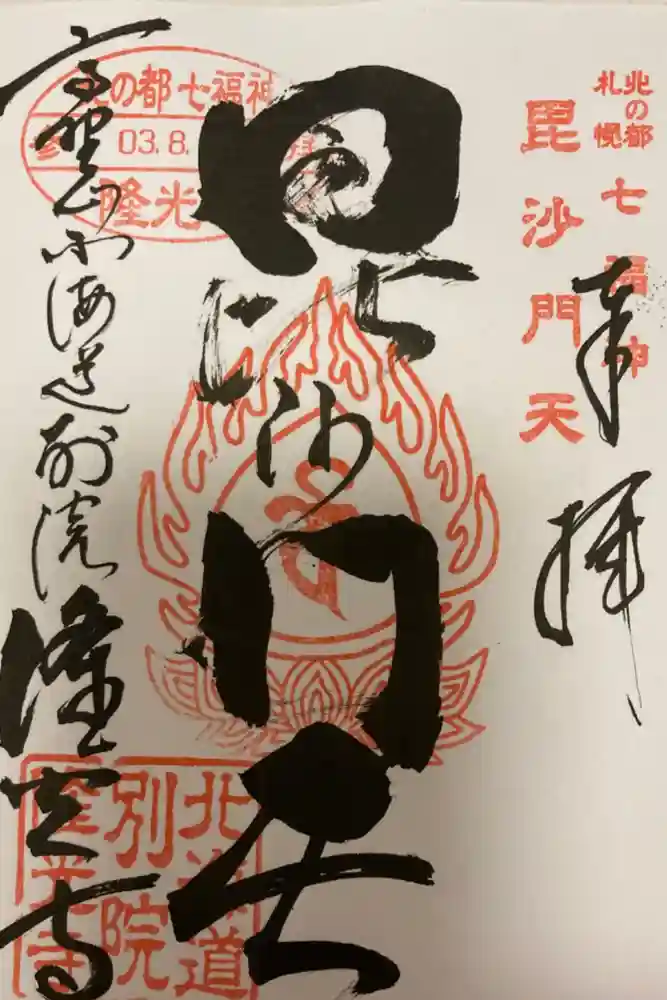 北の都
札幌
七福神
毘沙門天
奉拝
毘沙門天
北の都七福神
03.8.
隆光
高野山北海道別院
隆光寺
北海道
別院
隆光寺